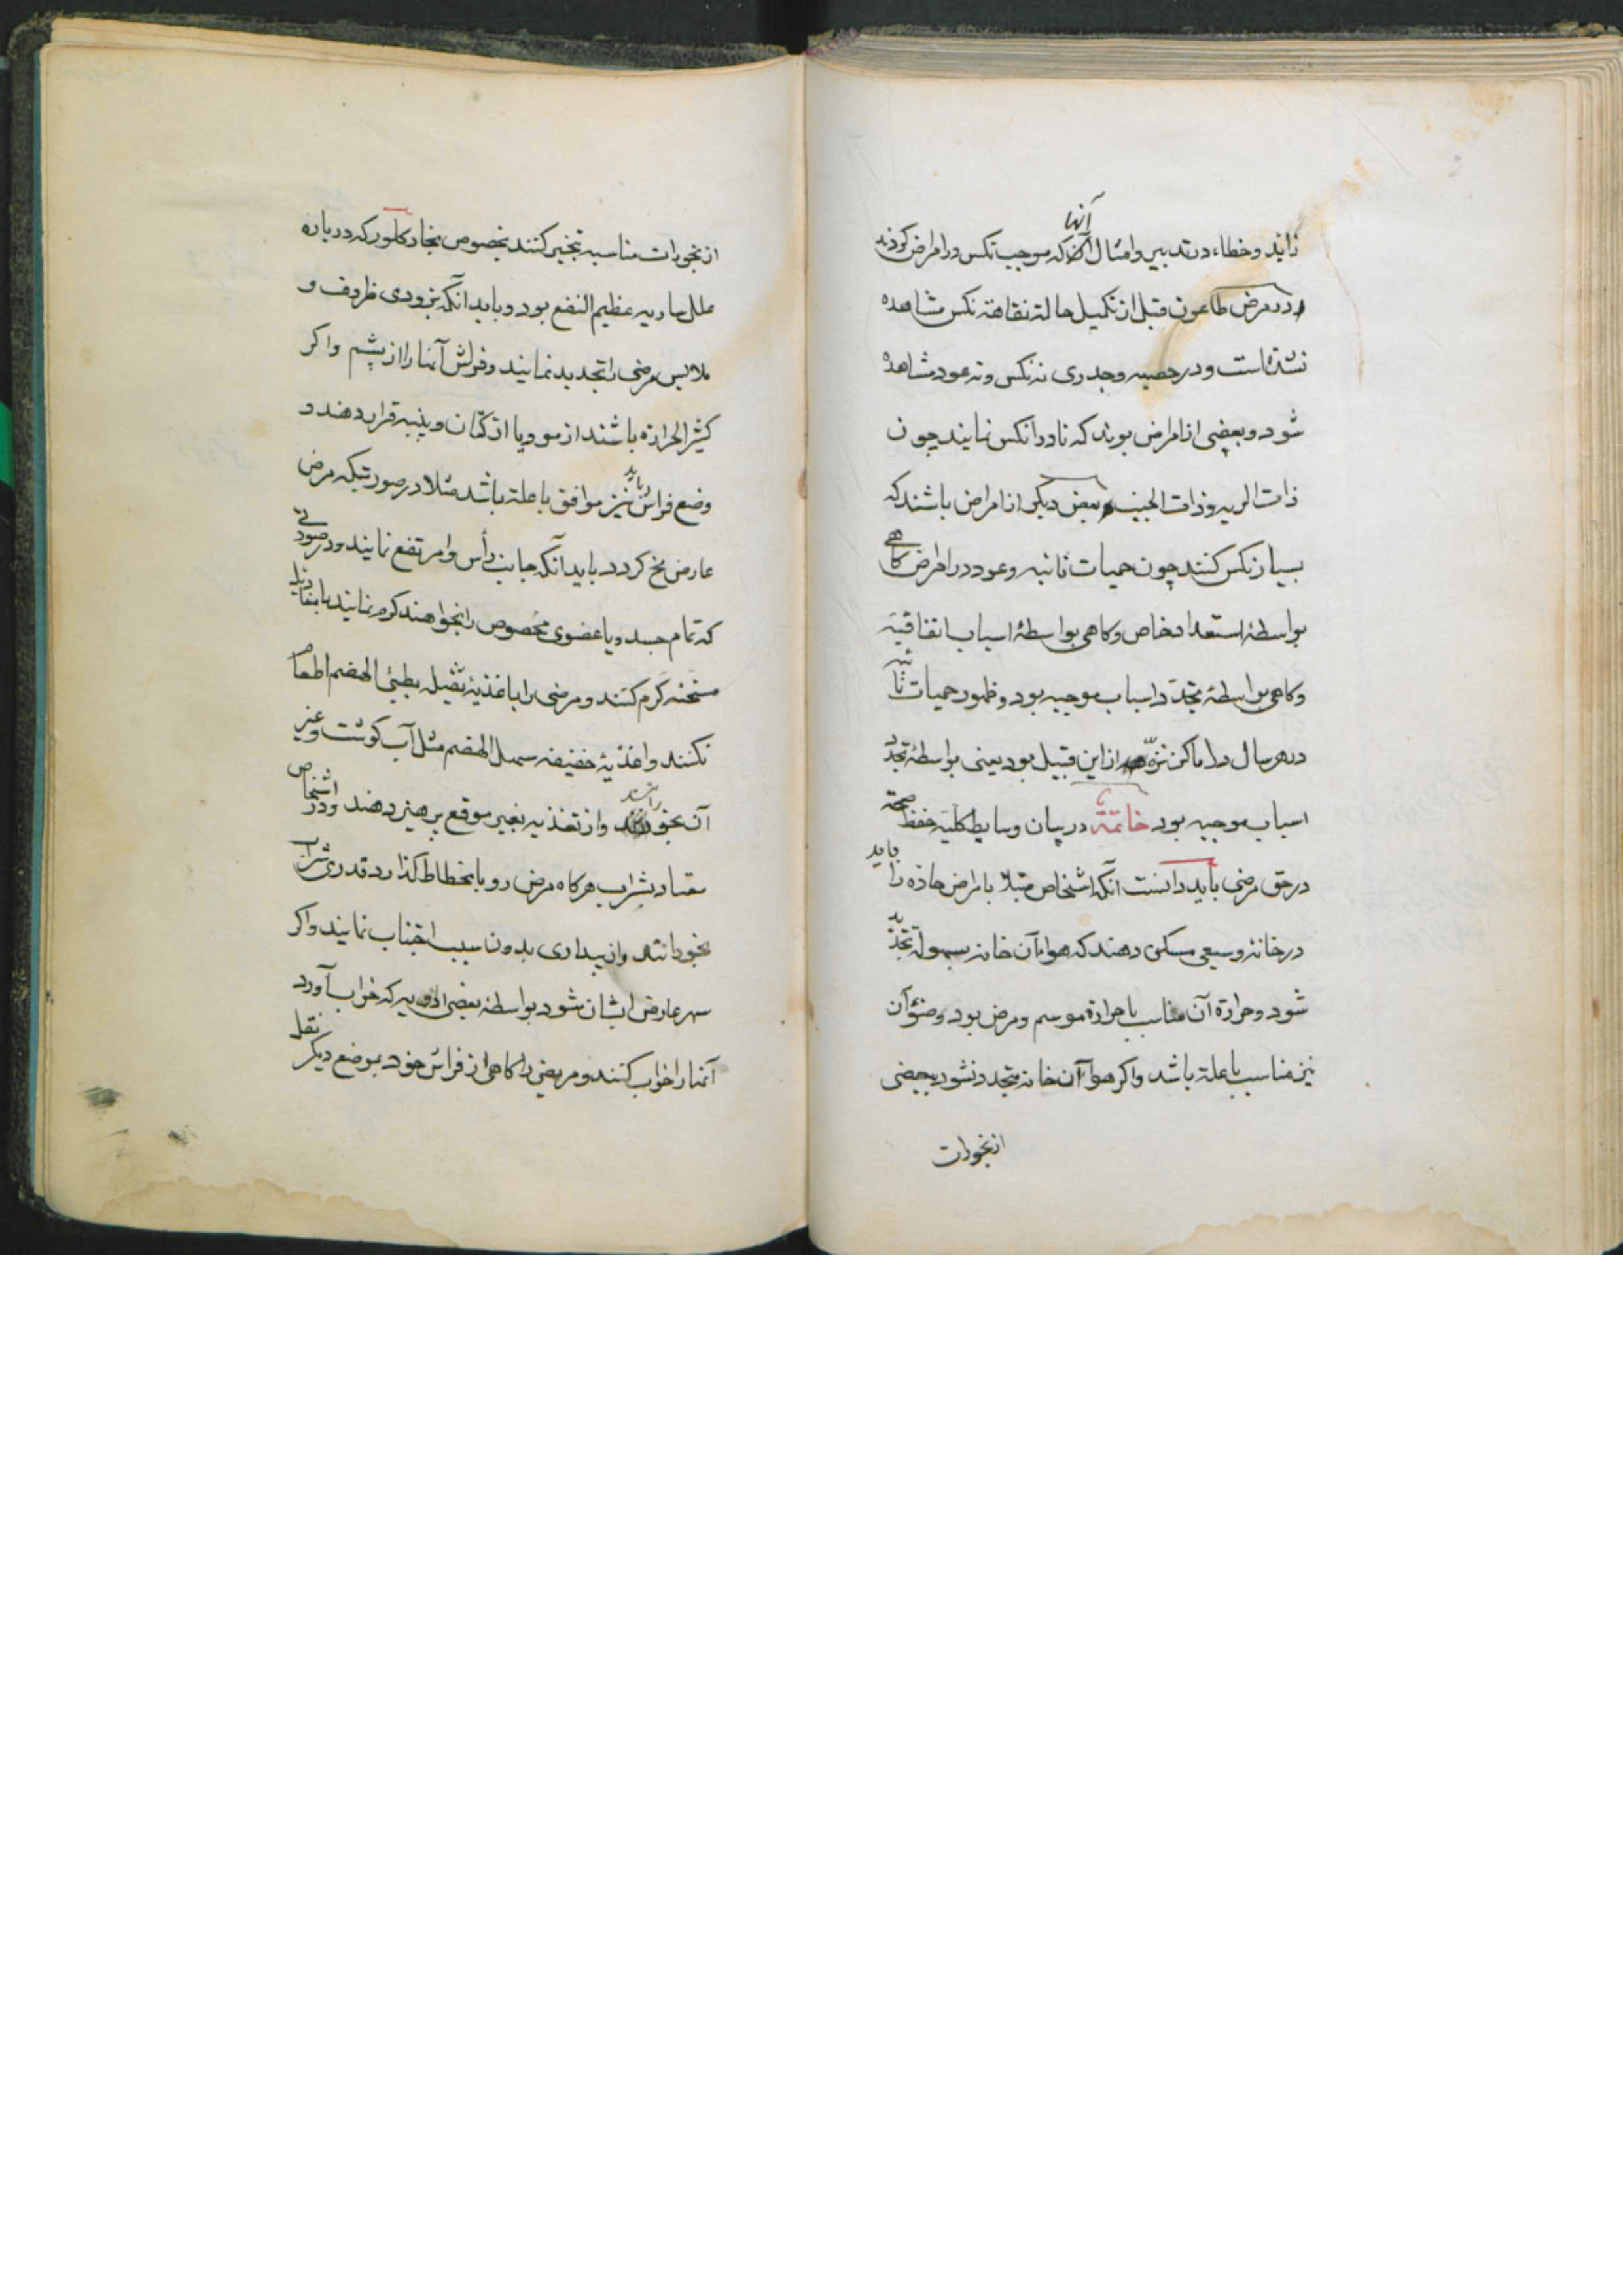 زاید و خطاء در تدبیر و امثال آنها که موجب نکس در امراض کردند
و در مرض طاعون قبل از تکمیل حالة نقاهة نکس مشاهده
نشده است و در حصبه و جدری نه نکس و نه عود مشاهده
شود و بعضی از امراض بوند که نادرا نکس نمایند چون
ذات الریه و ذات الجنب و بعض دیکر از امراض باشند که
بسیار نکس کنند چون حمیات نائبه و عود در امراض کاهی
بواسطهٔ استعداد خاص و کاهی بواسطهٔ اسباب اتفاقیّه
و کاهی بواسطهٔ تجدّد اسباب موجبه بود و ظهور حمیات نائبه
در هر سال در اماکن نزّه از این قبیل بود یعنی بواسطهٔ تجدّد
اسباب موجبه بود خاتمة در بیان وسایط کلیّه حفظ صحّة
در حق مرضی باید دانست انکه اشخاص مبتلا بامراض حاده را باید
در خانهٔ وسیعی مسکن دهند که هواء آن خانه بسهولة تجدّد
شود و حرارة آن مناسب با حرارة موسم و مرض بود و ضوء آن
نیز مناسب با علة باشد و اکر هواء آن خانه متجدد نشود ببعضی
از بخورات
از بخورات مناسبه تبخیر کنند بخصوص بخار کلور که در باره
علل ساریه عظیم النفع بود و باید انکه بزودی ظروف و
ملابس مرضی را تجدید نمایند و فراش آنها را از پشم و اکر
کثیر الحرارة باشند از مو و یا از کتان و پنبه قرار دهند و
وضع فراش باید نیز موافق با علة باشد مثلا در صورتیکه مرض
عارض مخ کردد باید آنکه جانب رأس را مرتفع نمایند و در صورتی
که تمام جسد و یا عضوی مخصوص را بخواهند کرم نمایند
مسخنه کرم کنند و مرضی را باغذیهٔ ثقیله بطیئ الهضم اطعام
نکنند و اغذیهٔ خفیفه سهل الهضم مثل آب کوشت و غیر
آن بخورانند و از تغذیه بغیر موقع پرهیز دهند و در اشخاص
معتاد بشراب هرکاه مرض رو بانحطاط کذارد قدری شراب
بخورانند و از بیداری بدون سبب اجتناب نمایند و اکر
سهر عارض ایشان شود بواسطهٔ بعضی ادویه که خواب آورد
آنها را خواب کنند و مریض را کاهی از فراش خود بموضع دیکر نقل